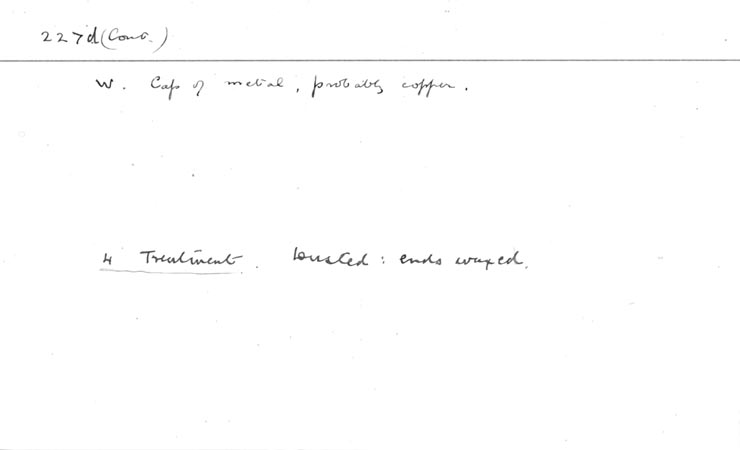 227d (Cont.)
W. Cap of metal, probably copper.
4 Treatment. Dusted: ends waxed.